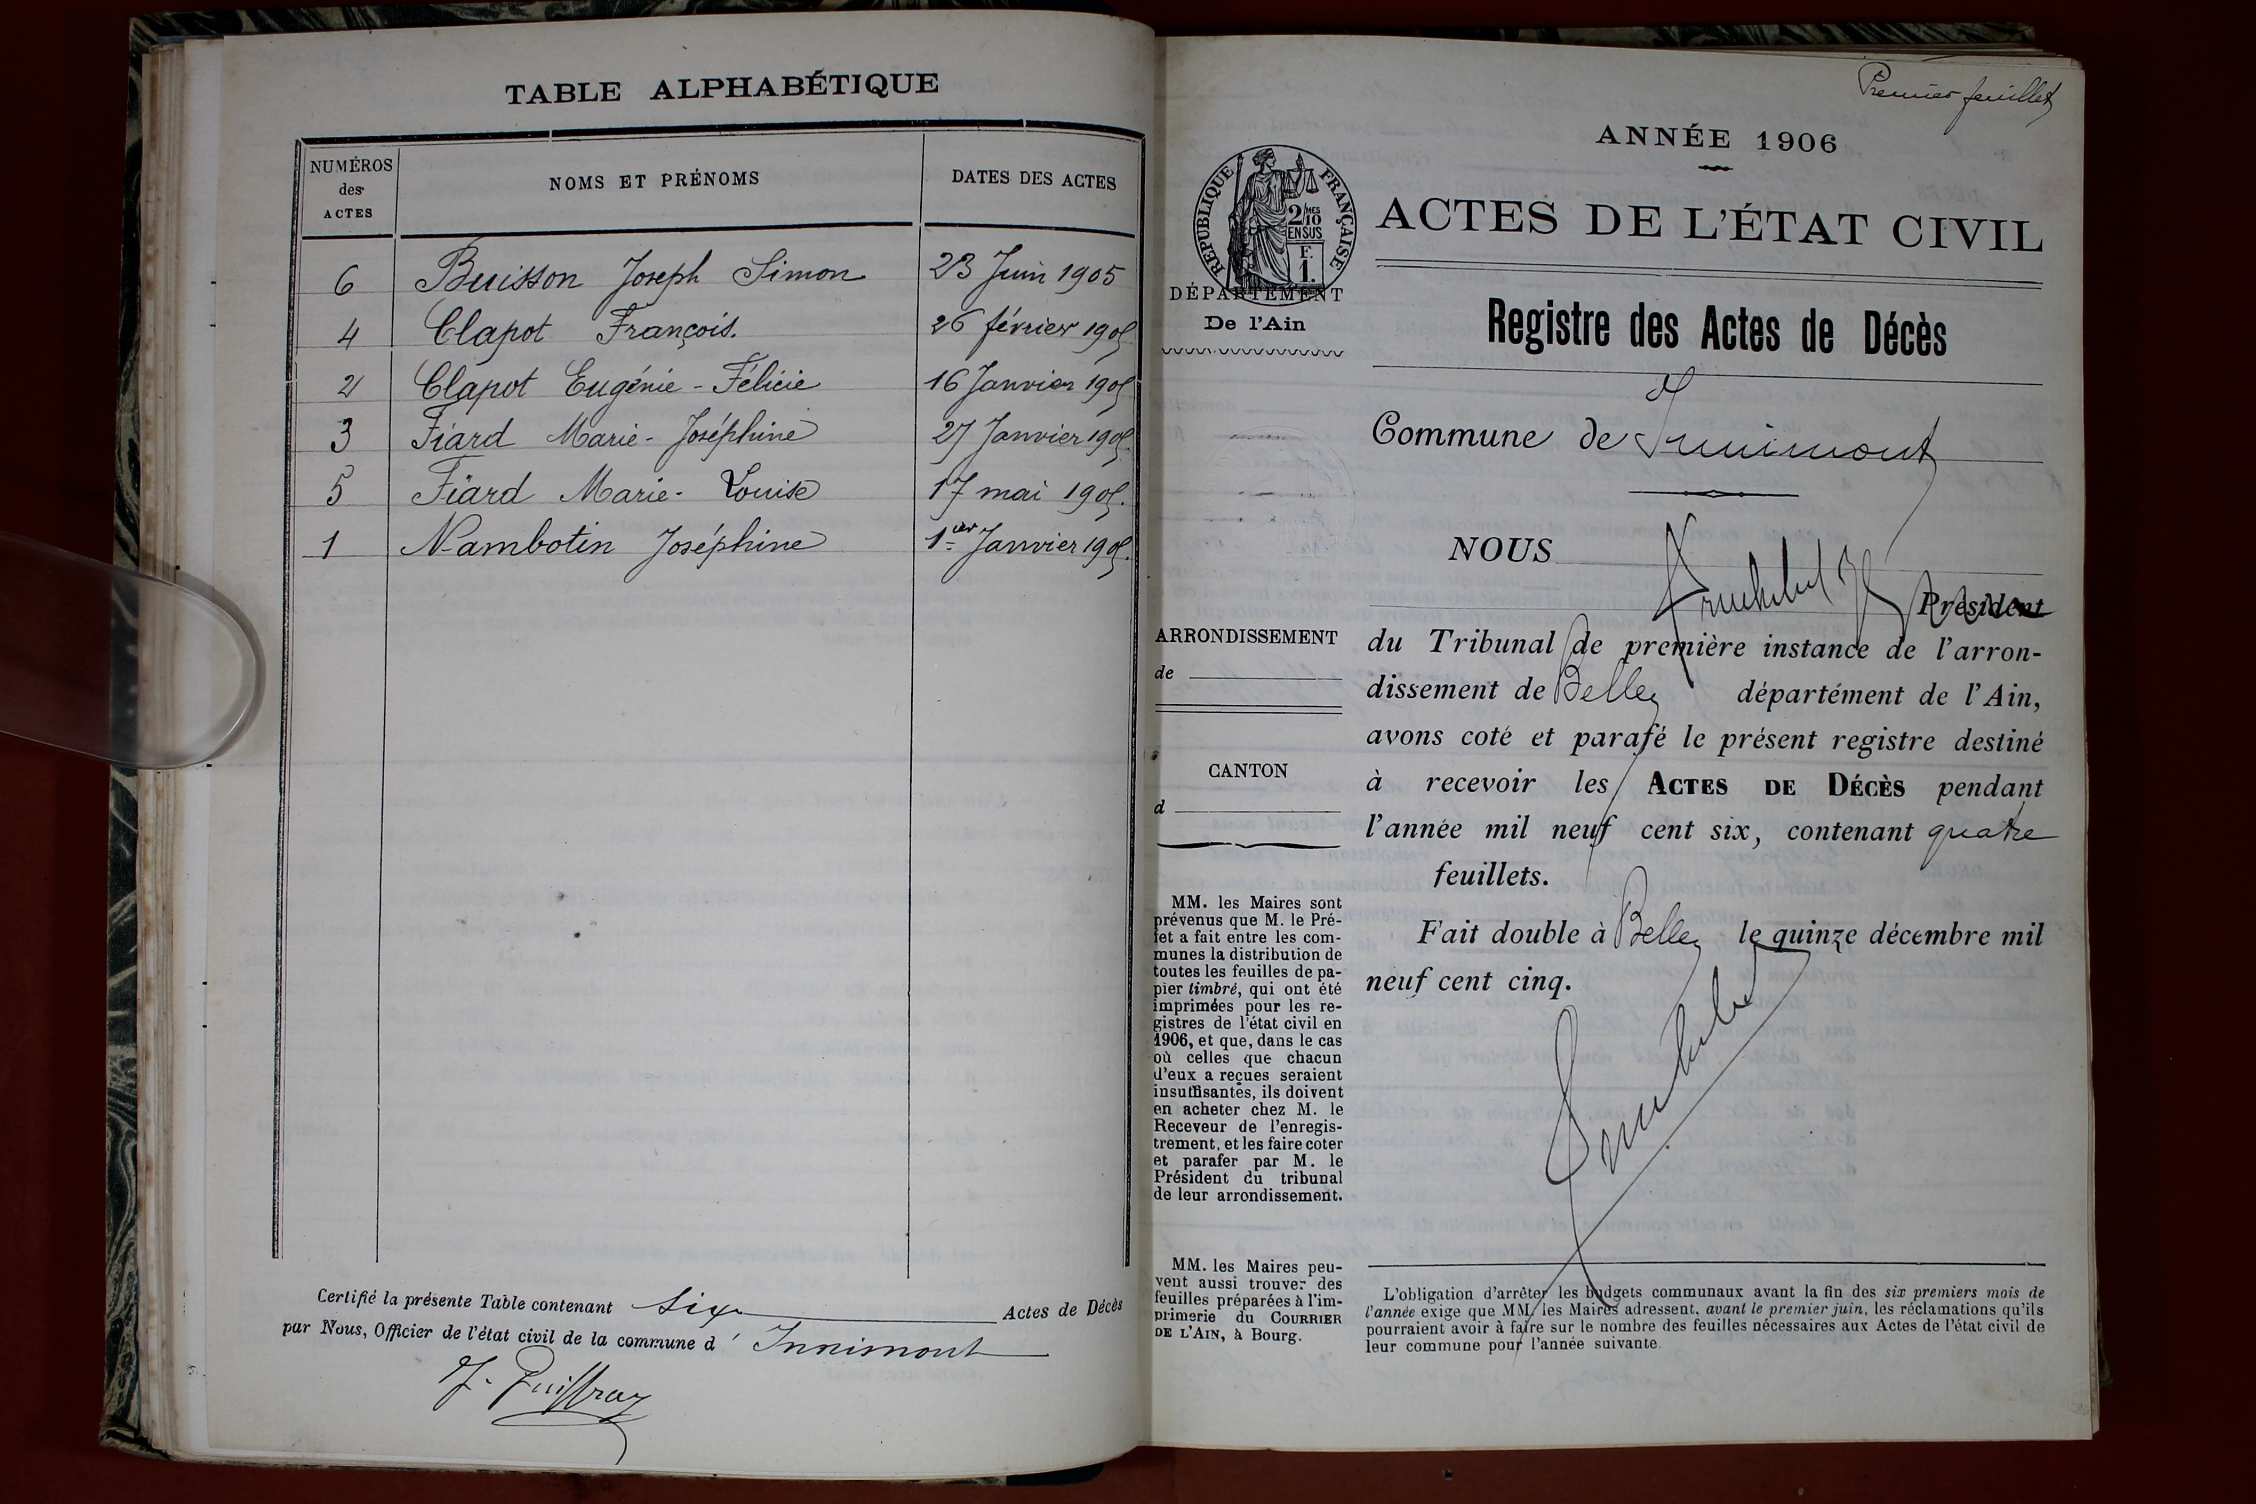 TABLE ALPHABÉTIQUE
NUMÉROS des ACTES NOMS ET PRÉNOMS DATES DES ACTES
6 Buisson Joseph Simon 23 Juin 1905
4 Clapot François. 26 février 1905
2 Clapot Eugénie - Félicie 16 Janvier 1905
3 Fiard Marie - Joséphine 27 Janvier 1905
5 Fiard Marie - Louise 17 mai 1905.
1 Nambotin Joséphine 1er Janvier 1905.
Certifié la présente Table contenant six Actes de Décès
par Nous, Officier de l'état civil de la commune d' Innimont
Premier feuillet
ANNÉE 1906
RÉPUBLIQUE FRANÇAISE
2/10 MES
EN SUS
F.
1.
ACTES DE L'ÉTAT CIVIL
DÉPARTEMENT
De l'Ain
Registre des Actes de Décès
Commune de Innimont
NOUS
Président
du Tribunal de première instance de l'arron-
dissement de Belley département de l'Ain,
avons coté et parafé le présent registre destiné
à recevoir les ACTES DE DÉCÈS pendant
l'année mil neuf cent six, contenant quatre
feuillets.
Fait double à Belley le quinze décembre mil
neuf cent cinq.
ARRONDISSEMENT
de
CANTON
d
MM. les Maires sont
prévenus que M. le Pré-
fet a fait entre les com-
munes la distribution de
toutes les feuilles de pa-
pier timbré, qui ont été
imprimées pour les re-
gistres de l'état civil en
1906, et que, dans le cas
où celles que chacun
d'eux a reçues seraient
insuffisantes, ils doivent
en acheter chez M. le
Receveur de l'enregis-
trement, et les faire coter
et parafer par M. le
Président du tribunal
de leur arrondissement.
MM. les Maires peu-
vent aussi trouver des
feuilles préparées à l'im-
primerie du COURRIER
DE L'AIN, à Bourg.
L'obligation d'arrêter les budgets communaux avant la fin des six premiers mois de
l'année exige que MM. les Maires adressent, avant le premier juin, les réclamations qu'ils
pourraient avoir à faire sur le nombre des feuilles nécessaires aux Actes de l'état civil de
leur commune pour l'année suivante.